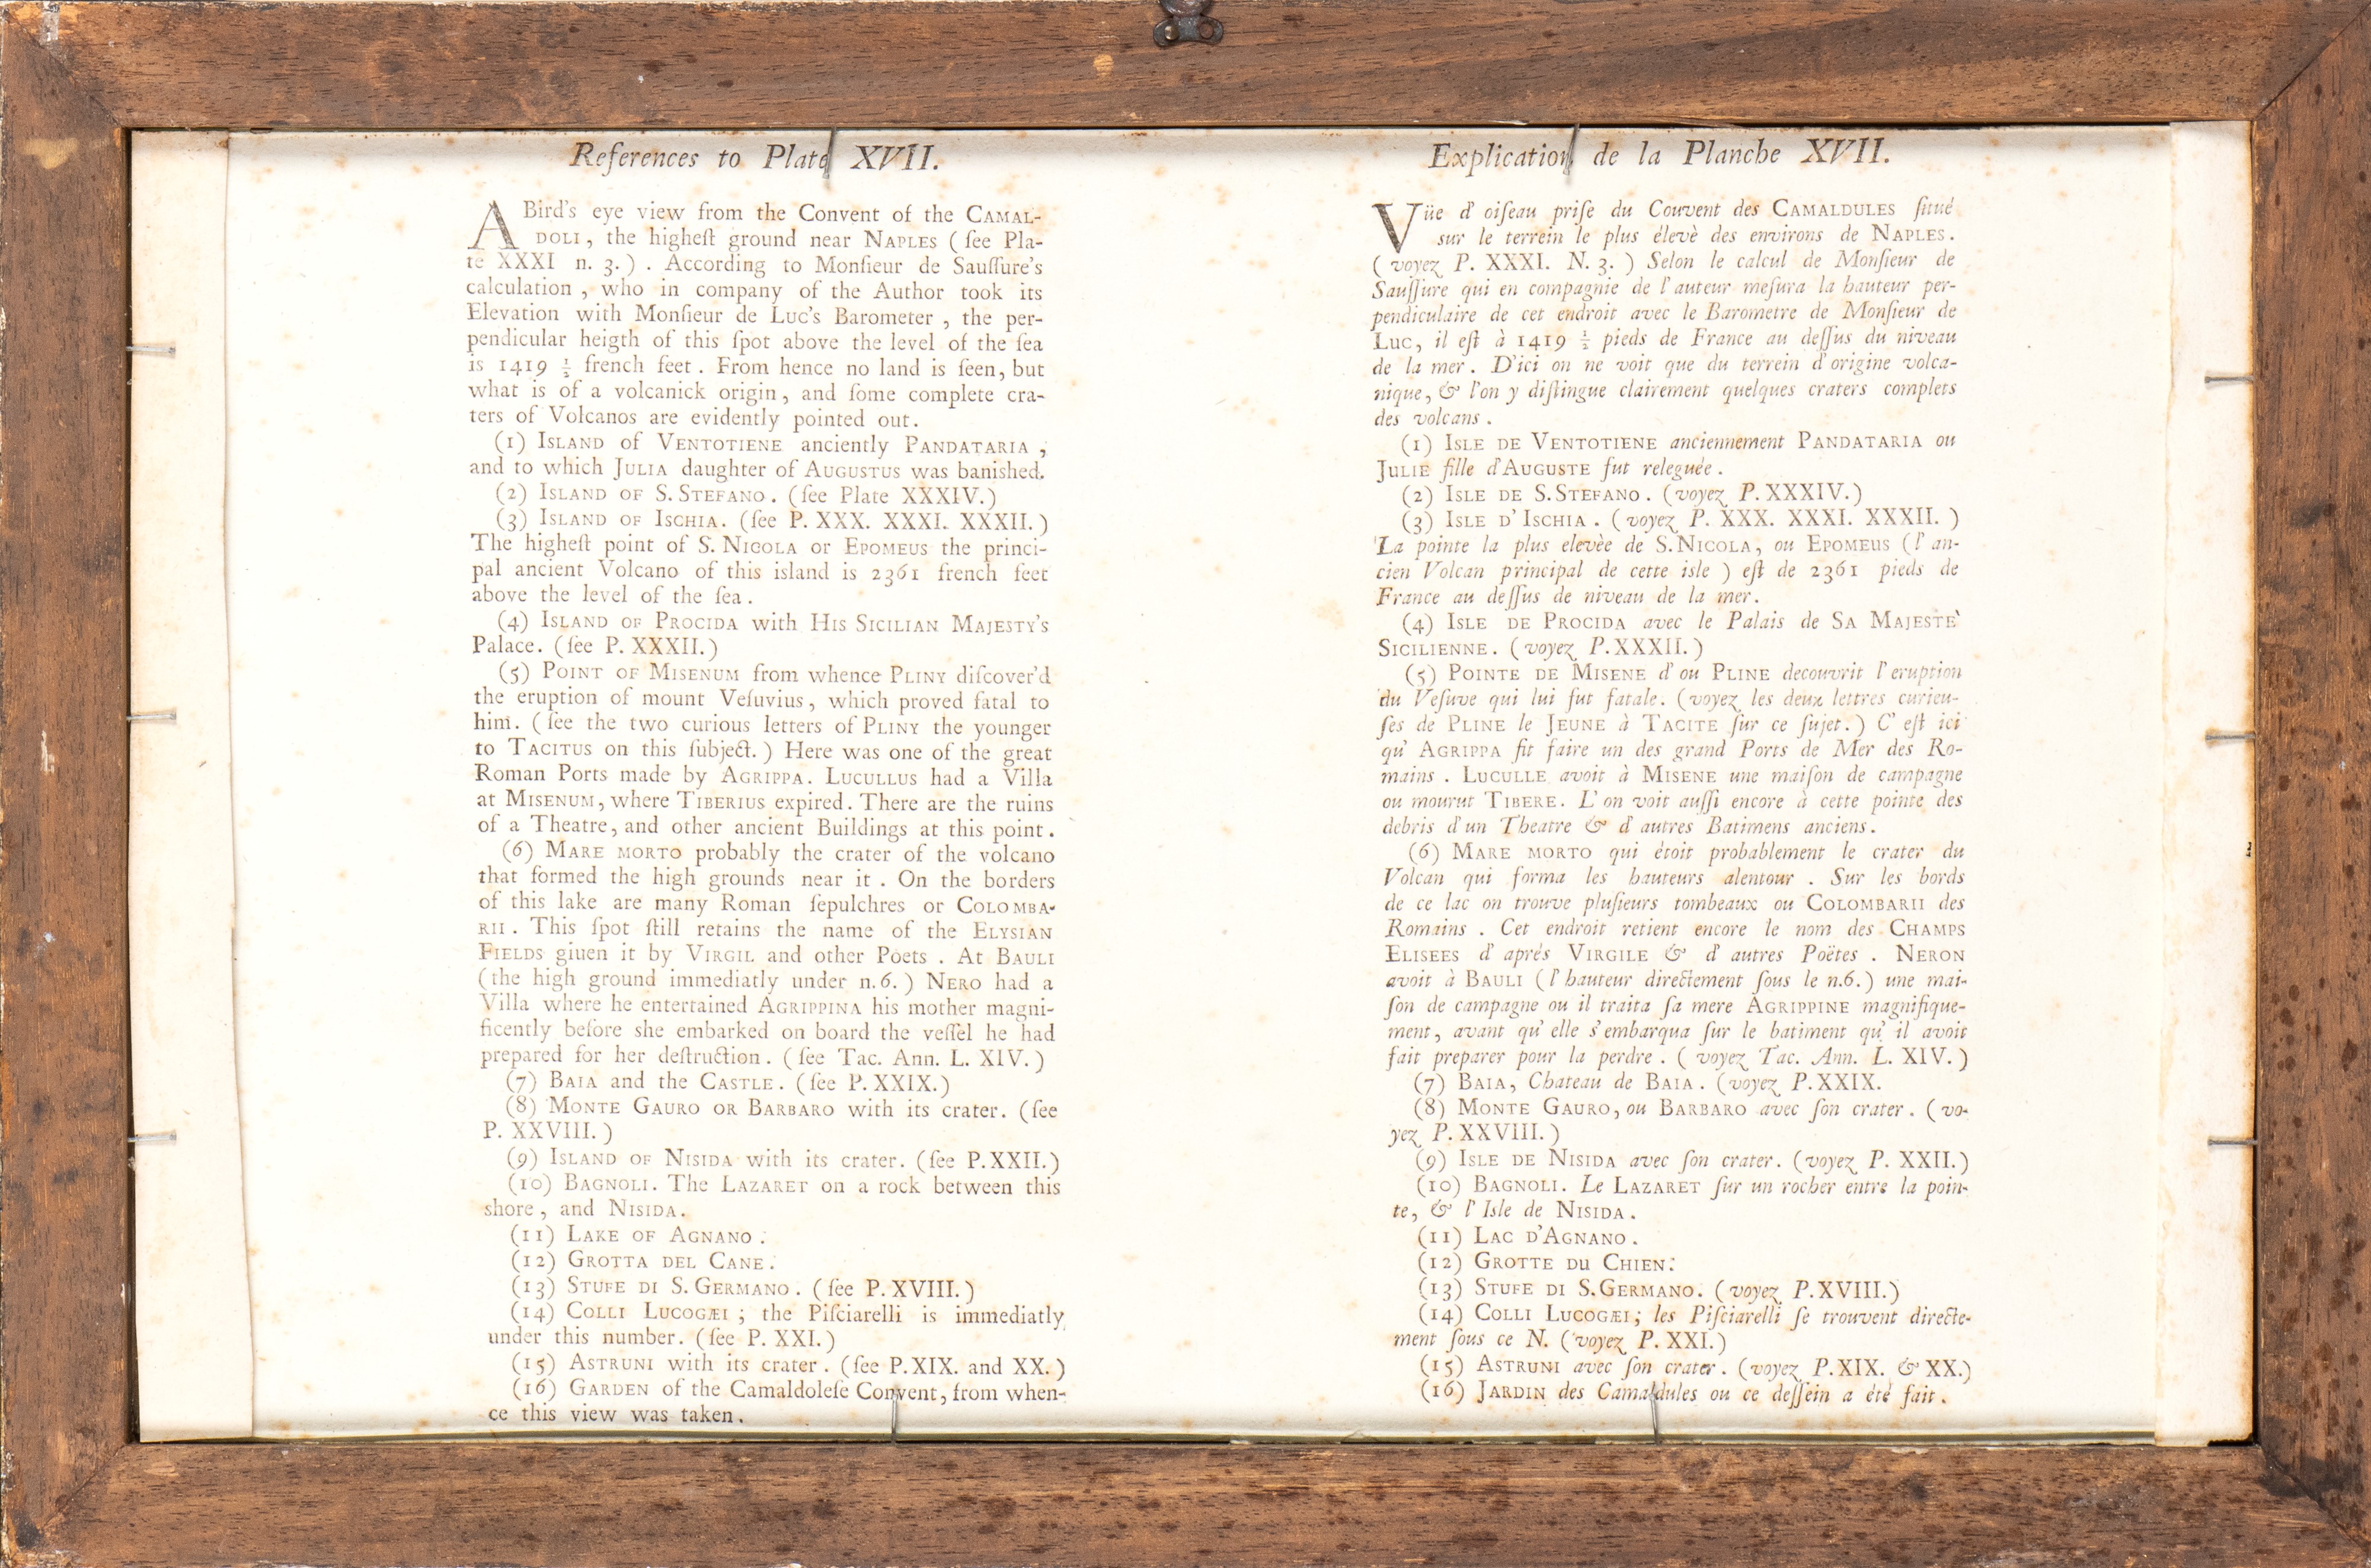 References to Plate XVII.
A Bird's eye view from the Convent of the CAMAL-
DOLI, the higheſt ground near NAPLES (ſee Pla-
te XXXI n. 3.). According to Monſieur de Sauſſure's
calculation, who in company of the Author took its
Elevation with Monſieur de Luc's Barometer, the per-
pendicular heigth of this ſpot above the level of the ſea
is 1419 ½ french feet. From hence no land is ſeen, but
what is of a volcanick origin, and ſome complete cra-
ters of Volcanos are evidently pointed out.
(1) ISLAND of VENTOTIENE anciently PANDATARIA,
and to which JULIA daughter of AUGUSTUS was baniſhed.
(2) ISLAND OF S. STEFANO. (ſee Plate XXXIV.)
(3) ISLAND OF ISCHIA. (ſee P. XXX. XXXI. XXXII.)
The higheſt point of S. NICOLA or EPOMEUS the princi-
pal ancient Volcano of this island is 2361 french feet
above the level of the ſea.
(4) ISLAND OF PROCIDA with HIS SICILIAN MAJESTY'S
Palace. (ſee P. XXXII.)
(5) POINT OF MISENUM from whence PLINY diſcover'd
the eruption of mount Veſuvius, which proved fatal to
him. (ſee the two curious letters of PLINY the younger
to TACITUS on this ſubject.) Here was one of the great
Roman Ports made by AGRIPPA. LUCULLUS had a Villa
at MISENUM, where TIBERIUS expired. There are the ruins
of a Theatre, and other ancient Buildings at this point.
(6) MARE MORTO probably the crater of the volcano
that formed the high grounds near it. On the borders
of this lake are many Roman ſepulchres or COLOMBA-
RII. This ſpot ſtill retains the name of the ELYSIAN
FIELDS giuen it by VIRGIL and other Poets. At BAULI
(the high ground immediatly under n.6.) NERO had a
Villa where he entertained AGRIPPINA his mother magni-
ficently before she embarked on board the veſſel he had
prepared for her deſtruction. (ſee Tac. Ann. L. XIV.)
(7) BAIA and the CASTLE. (ſee P. XXIX.)
(8) MONTE GAURO OR BARBARO with its crater. (ſee
P. XXVIII.)
(9) ISLAND OF NISIDA with its crater. (ſee P. XXII.)
(10) BAGNOLI. The LAZARET on a rock between this
shore, and NISIDA.
(11) LAKE OF AGNANO.
(12) GROTTA DEL CANE.
(13) STUFE DI S. GERMANO. (ſee P. XVIII.)
(14) COLLI LUCOGÆI; the Piſciarelli is immediatly
under this number. (ſee P. XXI.)
(15) ASTRUNI with its crater. (ſee P. XIX. and XX.)
(16) GARDEN of the Camaldoleſe Convent, from when-
ce this view was taken.
Explication de la Planche XVII.
Vüe d' oiſeau priſe du Couvent des CAMALDULES ſitué
sur le terrein le plus élevè des environs de NAPLES.
(voyez P. XXXI. N. 3.) Selon le calcul de Monſieur de
Sauſſure qui en compagnie de l'auteur meſura la hauteur per-
pendiculaire de cet endroit avec le Barometre de Monſieur de
LUC, il eſt à 1419 ½ pieds de France au deſſus du niveau
de la mer. D'ici on ne voit que du terrein d'origine volca-
nique, & l'on y diſtingue clairement quelques craters complets
des volcans.
(1) ISLE DE VENTOTIENE anciennement PANDATARIA ou
JULIE fille d'AUGUSTE fut releguée.
(2) ISLE DE S. STEFANO. (voyez P. XXXIV.)
(3) ISLE D'ISCHIA. (voyez P. XXX. XXXI. XXXII.)
La pointe la plus elevèe de S. NICOLA, ou EPOMEUS (l'an-
cien Volcan principal de cette isle) eſt de 2361 pieds de
France au deſſus de niveau de la mer.
(4) ISLE DE PROCIDA avec le Palais de SA MAJESTE`
SICILIENNE. (voyez P. XXXII.)
(5) POINTE DE MISENE d'ou PLINE decouvrit l'eruption
du Veſuve qui lui fut fatale. (voyez les deux lettres curieu-
ſes de PLINE le JEUNE à TACITE ſur ce ſujet.) C'eſt ici
qu' AGRIPPA fit faire un des grand Ports de Mer des Ro-
mains. LUCULLE avoit à MISENE une maiſon de campagne
ou mourut TIBERE. L'on voit auſſi encore à cette pointe des
debris d'un Theatre & d'autres Batimens anciens.
(6) MARE MORTO qui étoit probablement le crater du
Volcan qui forma les hauteurs alentour. Sur les bords
de ce lac on trouve pluſieurs tombeaux ou COLOMBARII des
Romains. Cet endroit retient encore le nom des CHAMPS
ELISEES d'aprés VIRGILE & d'autres Poëtes. NERON
avoit à BAULI (l'hauteur directement ſous le n.6.) une mai-
ſon de campagne ou il traita ſa mere AGRIPPINE magnifique-
ment, avant qu'elle s'embarqua ſur le batiment qu'il avoit
fait preparer pour la perdre. (voyez Tac. Ann. L. XIV.)
(7) BAIA, Chateau de BAIA. (voyez P. XXIX.
(8) MONTE GAURO, ou BARBARO avec ſon crater. (vo-
yez P. XXVIII.)
(9) ISLE DE NISIDA avec ſon crater. (voyez P. XXII.)
(10) BAGNOLI. Le LAZARET ſur un rocher entre la poin-
te, & l'Isle de NISIDA.
(11) LAC D'AGNANO.
(12) GROTTE DU CHIEN.
(13) STUFE DI S. GERMANO. (voyez P. XVIII.)
(14) COLLI LUCOGÆI; les Piſciarelli ſe trouvent directe-
ment ſous ce N. (voyez P. XXI.)
(15) ASTRUNI avec ſon crater. (voyez P. XIX. & XX.)
(16) JARDIN des Camaldules ou ce deſſein a été fait.